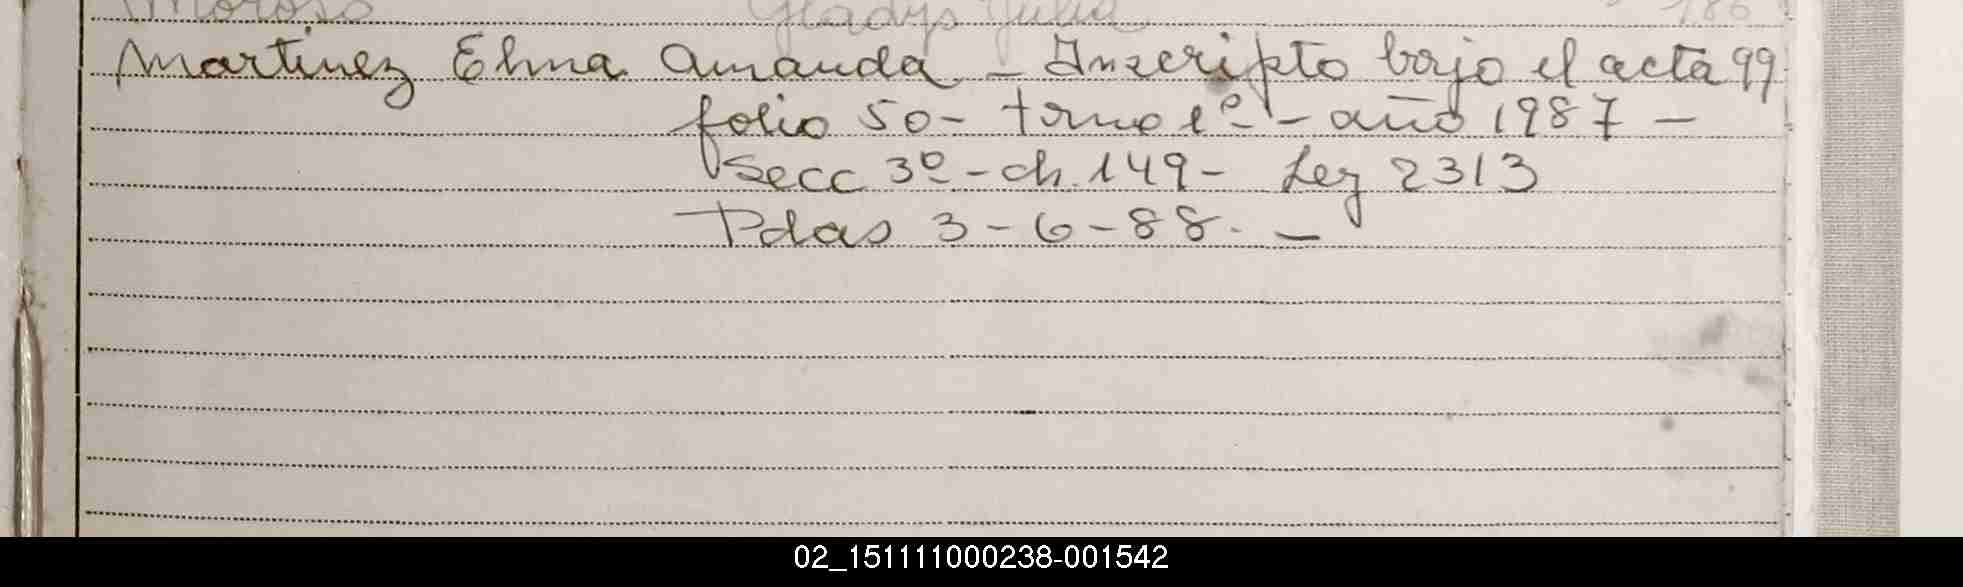 Moroso Gladys Julia 186
Martinez Elma Amanda - Inscripto bajo el acta 99
folio 50 - tomo 1º - año 1987 -
Secc 3º - ch. 149 - Ley 2313
Pdas 3-6-88. -
02_151111000238-001542